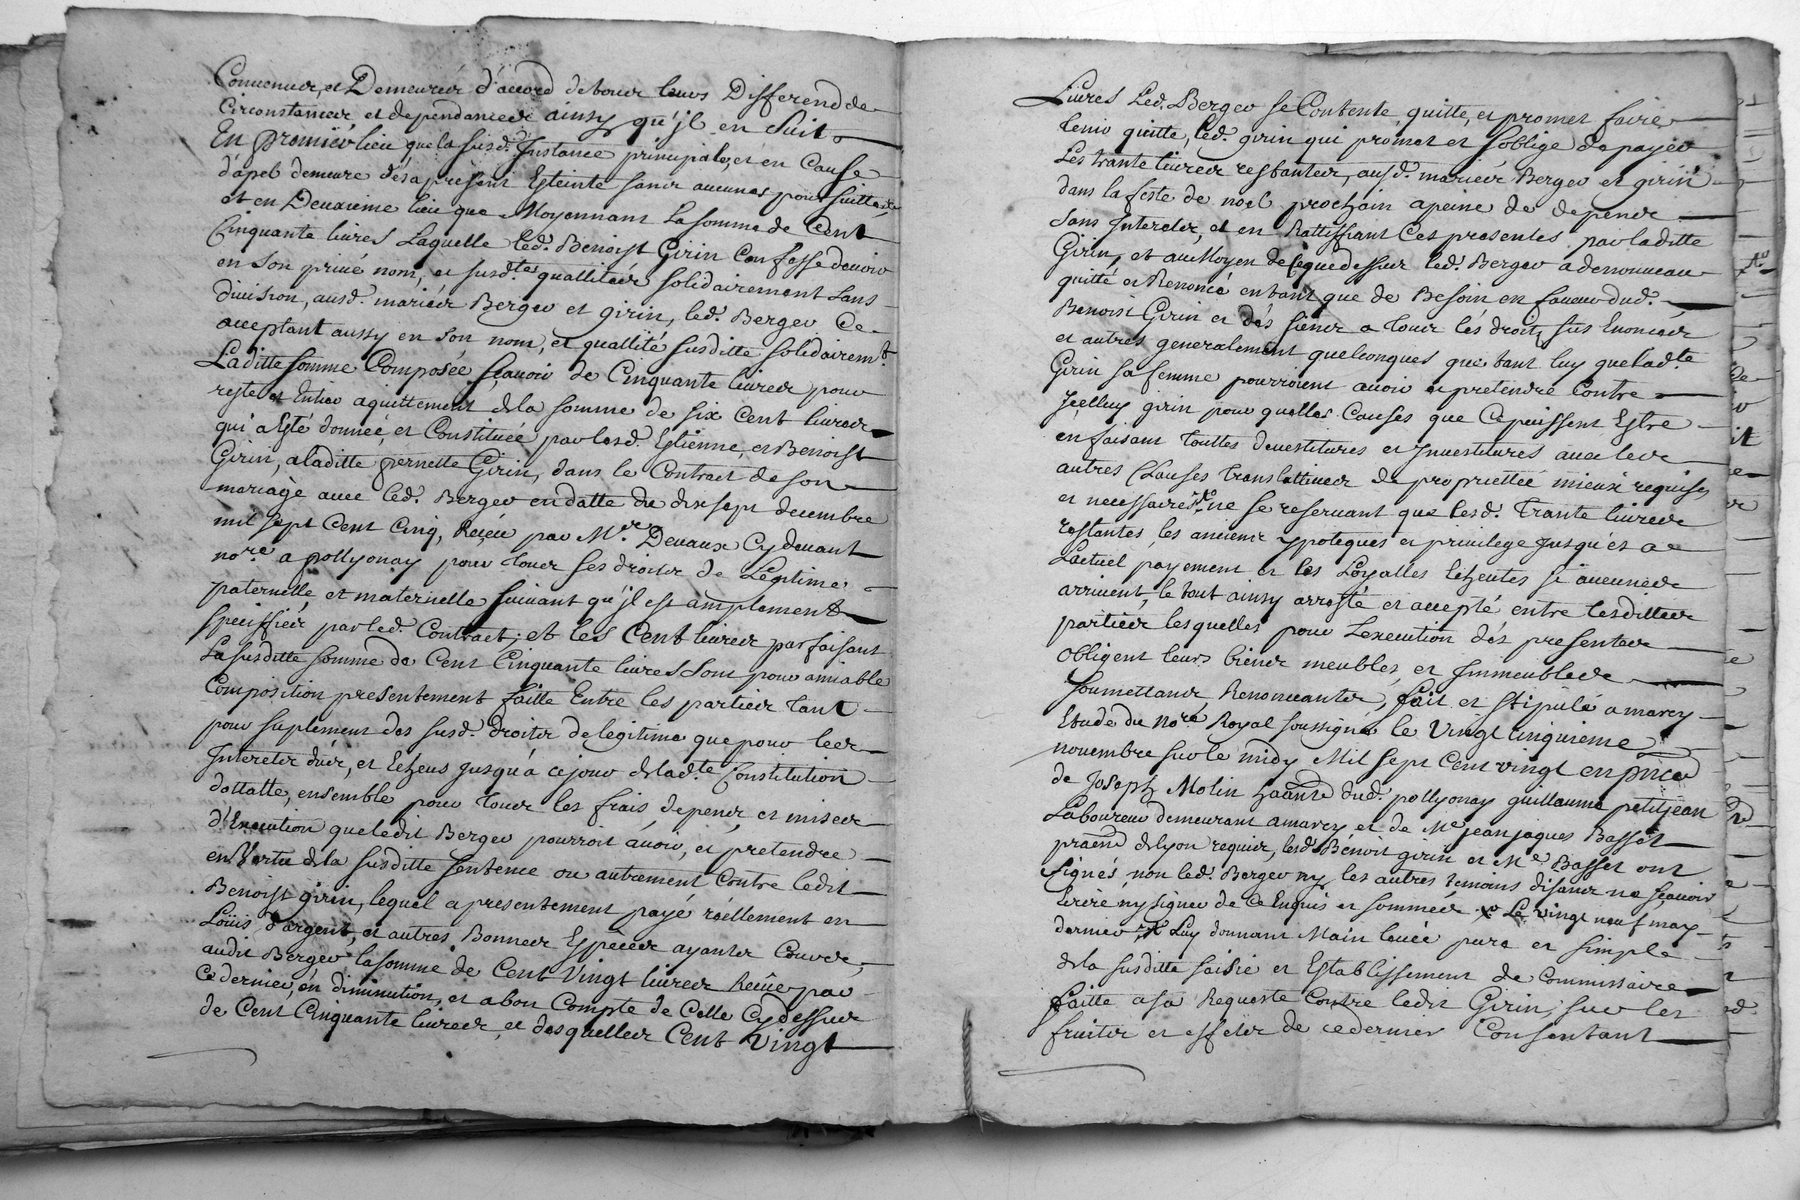 Convenues, et Demeurées d'accord de tous leurs Differend de
Circonstances et dependances ainsy qu'jl en suit
En premier lieu que la susd. Jnstance principale, et en Cause
d'apel demeure dés a present Esteinte sans aucunes poursuittes,
et en Deuxieme lieu que Moyennant La somme de Cent
Cinquante livres Laquelle led. Benoist Girin Confesse devoir
en son privé nom, et susd.tes quallitees solidairement sans
division, ausd. mariées Berger et girin, led. Berger Ce
acceptant aussy en son nom, et quallité susditte solidairem.t
Laditte somme Composée, sçavoir de Cinquante livres pour
reste et Entier aquittement de la somme de six Cent livres
qui a Esté donnée, et Constituée par lesd. Estienne, et Benoist
Girin, a laditte pernette Girin, dans le Contract de son
mariage avec led. Berger en datte du dix sept decembre
mil sept Cent Cinq, Reçeu par M.re Devaux Cy devant
no.re a pollyonay pour tous ses droits de Legitime
paternelle, et maternelle suivant qu'jl est amplement
speciffiéz par led. Contract; et les Cent livres parfaisant
La susditte somme de Cent Cinquante livres sont pour amiable
Composition presentement faitte Entre les parties tant
pour suplement des susd. droits de legitime que pour les
Jnterets dûs, et Echeus jusqu'á ce jour de lad.te Constitution
dottalle, ensemble pour tous les frais, depens, et mises
d'Execution que ledit Berger pourroit avoir, et pretendre
en Vertu de la susditte sentence ou autrement Contre ledit
Benoist girin, lequel a presentement payé réellement en
Loüis d'argent, et autres Bonnes Especes ayants Cours,
audit Berger la somme de Cent Vingt livres Reçüe par
Ce dernier, en diminution, et a bon Compte de Celle Cy dessus
de Cent Cinquante livres, et desquelles Cent Vingt
Livres Led. Berger se Contente, quitte, et promet faire
tenir quitte, led. girin qui promet et s'oblige de payer
Les trante livres restantes, ausd. mariés Berger et girin
dans la feste de noel prochain a peine de depens
sans Jnterets, et en Rattiffiant Ces presentes par laditte
Girin, et au Moyen de Ce que dessus led. Berger a de nouveau
quitté et Renoncé en tant que de Besoin en faveur dud.
Benoist Girin et dés siens a tous lés droits sus Enoncés
et autres generalement quelconques que tant luy que lad.te
Girin sa femme pourroient avoir et pretendre Contre
Jcelluy girin pour quelles Causes que Ce puissent Estre
en faisant touttes devestitures et Jnvestitures avec les
autres Clauses translattives de proprietteé mieux requises
et necessaires ne se reservant que lesd. Trante livres
restantes, les anciens ypoteques et privilege jusqu'és a
Lactuel payement et les Loyalles Echeutes si aucunes
arrivent, le tout ainsy arresté et accepté entre lesdittes
parties lesquelles pour L'execution dés presentes
obligent leurs biens meubles, et Jmmeubles
soumettans, Renonceants, fait et stipulé a marcy
Etude du No.re Royal soussigné le Vingt cinquieme
novembre sur le midy Mil sept Cent vingt en p̃nce
de Joseph Molin haant dud. pollyonay guillaume petitjean
Laboureur demeurant a marcy, et de M.e jean jaques Basset
de lyon requis, led. Benoit girin et M.e Basset ont
signés non led. Berger ny les autres temoins disans ne sçavoir
Ecrire ny signer de Ce Enquis et sommés Le vingt neuf may
dernier Luy donnant Main levée pure et simple
de la susditte saisie et Establissement de Commissaire
faitte a sa Requeste Contre ledit Girin, sur les
fruits et effets de ce dernier Consentant